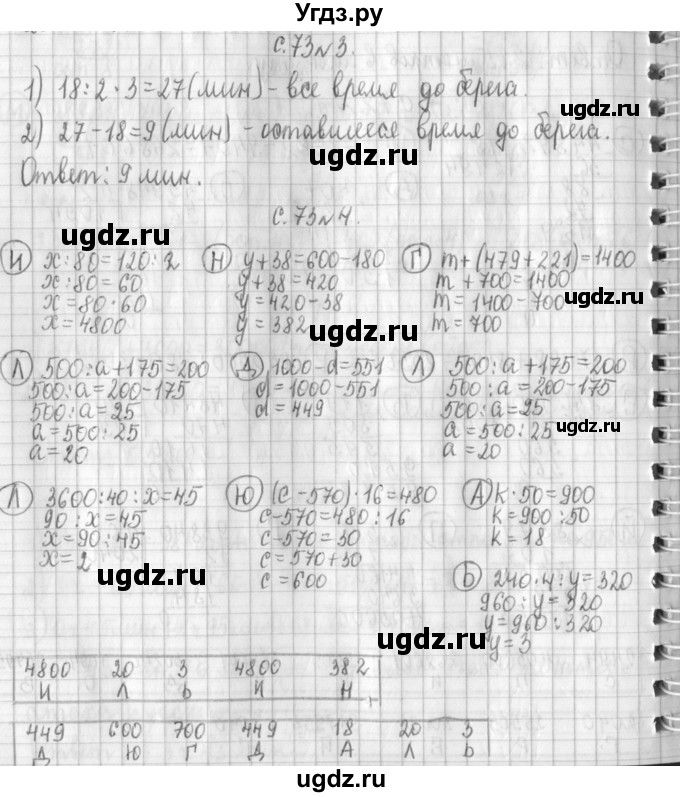 Угдз.ру
с.73№3.
1) 18:2·3=27(мин)-все время до берега.
2) 27-18=9(мин)-оставшееся время до берега.
ugdz.ru ugdz.ru
Ответ: 9 мин.
с.73№4.
ugdz.ru
И x:80=120:2
x:80=60
x=80·60
x=4800
Н y+38=600-180
y+38=420
y=420-38
y=382
Г m+(479+221)=1400
m+700=1400
m=1400-700
m=700
ugdz.ru
ugdz.ru
Л 500:a+175=200
500:a=200-175
500:a=25
a=500:25
a=20
Д 1000-d=551
d=1000-551
d=449
Л 500:a+175=200
500:a=200-175
500:a=25
a=500:25
a=20
ugdz.ru
Л 3600:40:x=45
90:x=45
x=90:45
x=2
ugdz.ru
Ю (c-570)·16=480
c-570=480:16
c-570=30
c=570+30
c=600
А k·50=900
k=900:50
k=18
Ь 240·4:y=320
960:y=320
y=960:320
y=3
ugdz.ru
4800 20 3 4800 382
И Л Ь И Н
449 600 700 449 18 20 3
Д Ю Г Д А Л Ь
ugdz.ru